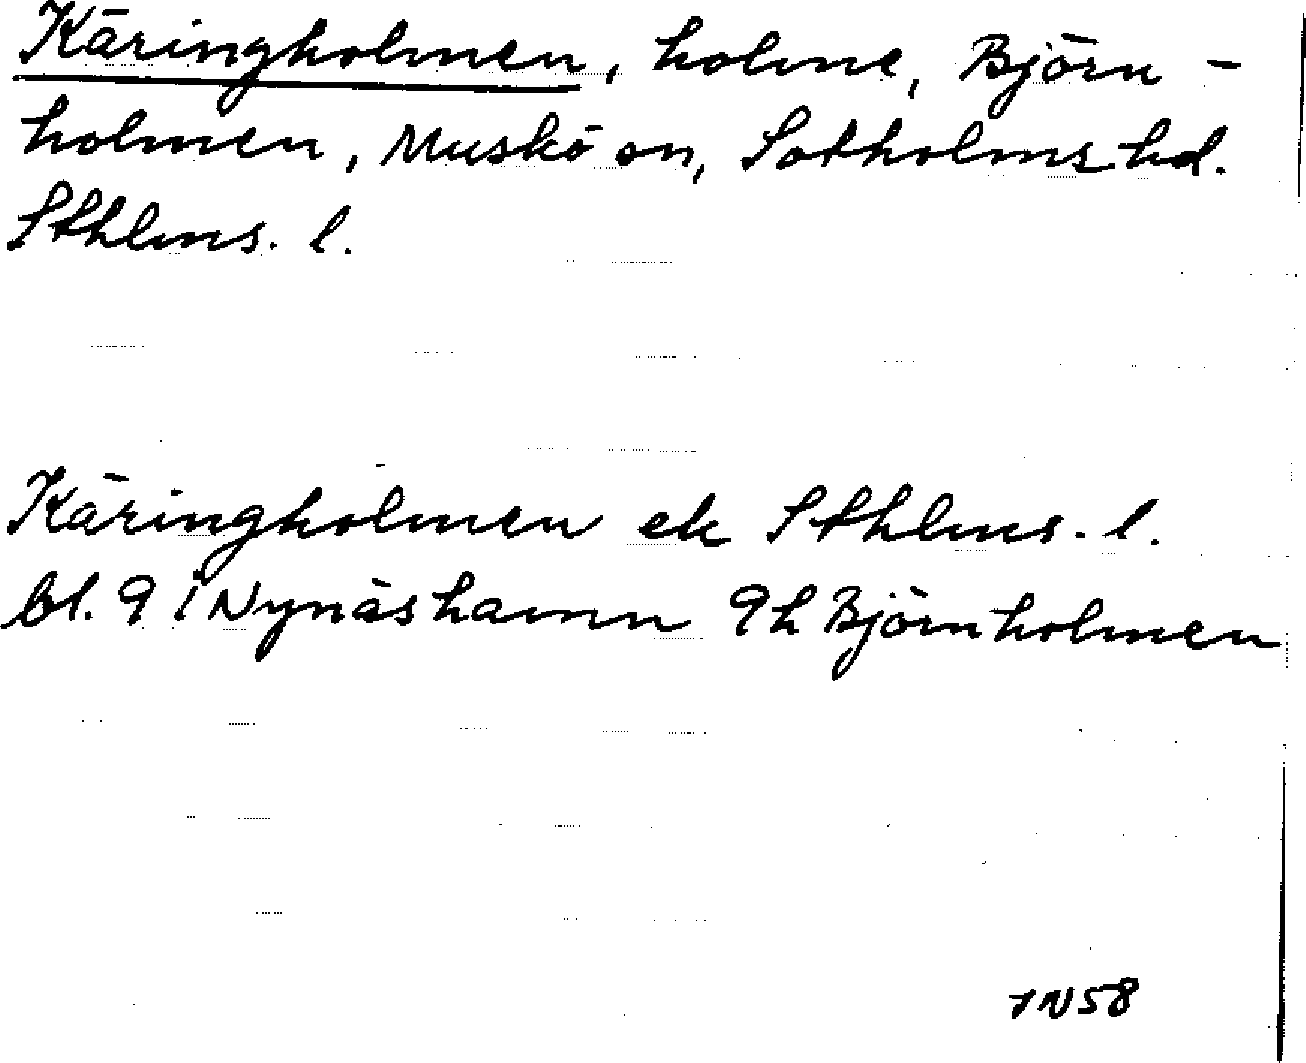 Käringholmen, holme, Björn-
holmen, Muskö sn, Sotholms hd.
Sthlms. l.
Käringholmen ek Sthlms. l.
bl. 9 i Nynäshamn 9h Björnholmen
IN58